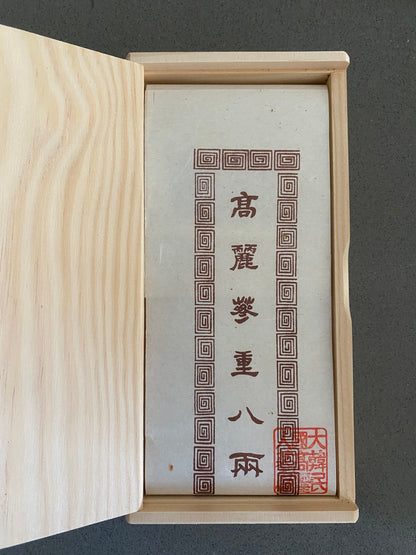 高麗蔘重八兩
大韓民